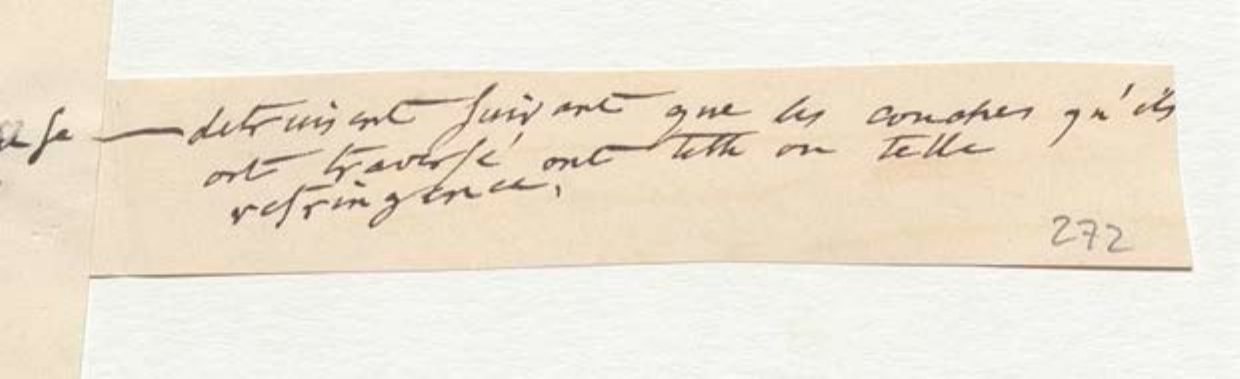 se — detruisent suivant que les couches qu'ils
ont traversé ont telle ou telle
refringence.
272